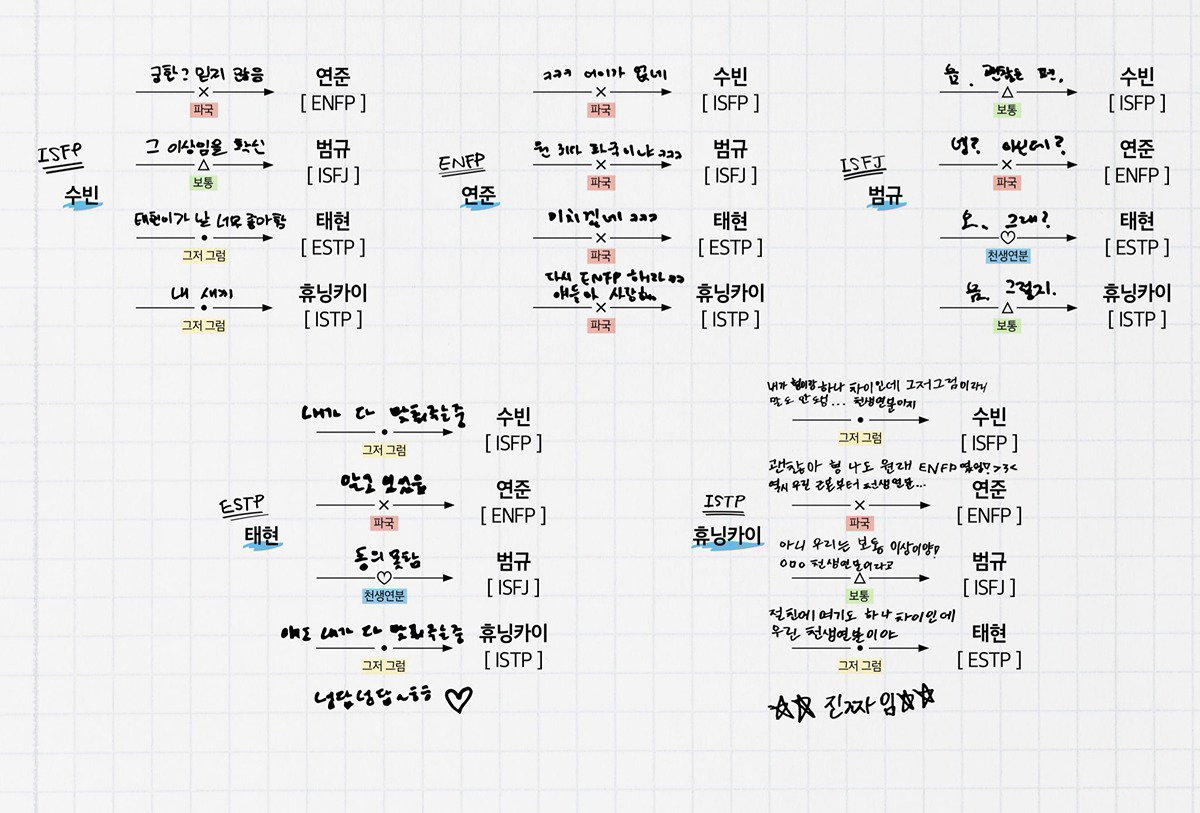 ISFP
수빈
궁합? 믿지 않음
파국
연준
[ ENFP ]
그 이상임을 확신
보통
범규
[ ISFJ ]
태현이가 날 너무 좋아함
그저 그럼
태현
[ ESTP ]
내 새끼
그저 그럼
휴닝카이
[ ISTP ]
ENFP
연준
ㅋㅋㅋ 어이가 없네
파국
수빈
[ ISFP ]
뭔 파국이냐 ㅋㅋㅋ
파국
범규
[ ISFJ ]
미치겠네 ㅋㅋㅋ
파국
태현
[ ESTP ]
다시 ENFP 해라 ㅋㅋ
얘들아 사랑해
파국
휴닝카이
[ ISTP ]
ISFJ
범규
음. 괜찮은 편.
보통
수빈
[ ISFP ]
넹? 아닌데?
파국
연준
[ ENFP ]
오. 그래?
천생연분
태현
[ ESTP ]
음. 그렇지.
보통
휴닝카이
[ ISTP ]
ESTP
태현
내가 다 맞춰주는중
그저 그럼
수빈
[ ISFP ]
알고 있었음
파국
연준
[ ENFP ]
동의 못함
천생연분
범규
[ ISFJ ]
얘도 내가 다 맞춰주는중
그저 그럼
휴닝카이
[ ISTP ]
냉담냉담~ㅎㅎ ♡
ISTP
휴닝카이
내가 형이랑 하나 차이인데 그저그럼이라니
말도 안돼... 천생연분이지
그저 그럼
수빈
[ ISFP ]
괜찮아 형 나도 원래 ENFP 였잉? >3<
역시 우린 근본부터 천생연분...
파국
연준
[ ENFP ]
아니 우리는 보통 이상이양!
ㅇㅇㅇ 천생연분이라고
보통
범규
[ ISFJ ]
절친에 여기도 하나 차이인데
우린 천생연분이야
그저 그럼
태현
[ ESTP ]
☆☆ 진짜임 ☆☆